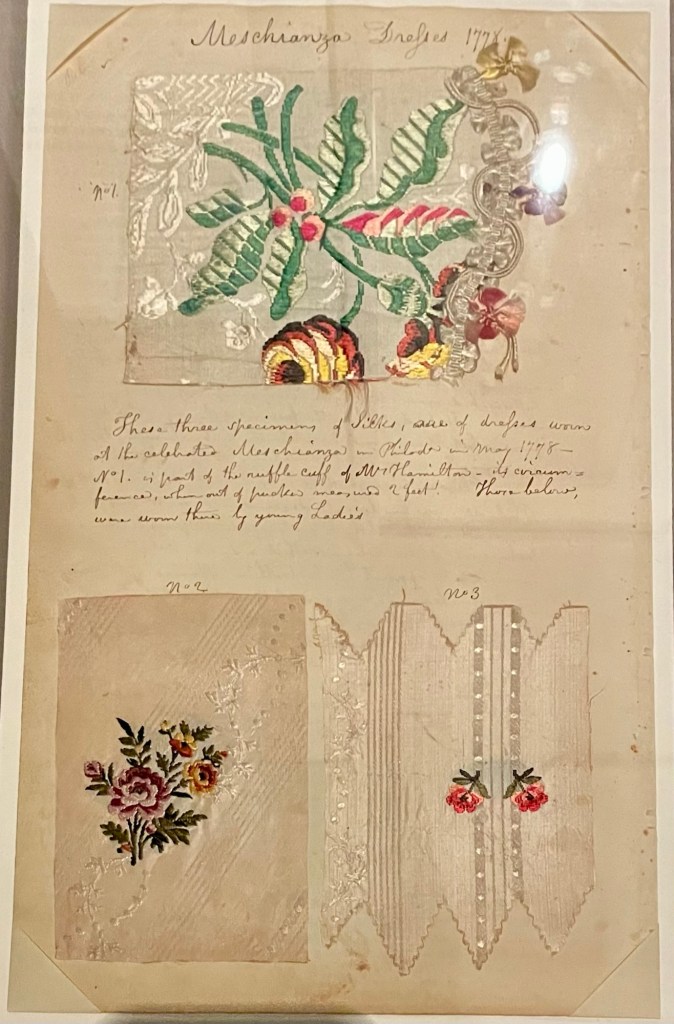 Meschianza Dresses 1778.
No 1.
These three specimens of Silks, are of dresses worn
at the celebrated Meschianza in Philada in May 1778 –
No 1. is part of the ruffle cuff of Mrs Hamilton – its circum=
ference, when out of pucker measured 2 feet! Those below,
were worn there by young Ladies
No 2
No 3